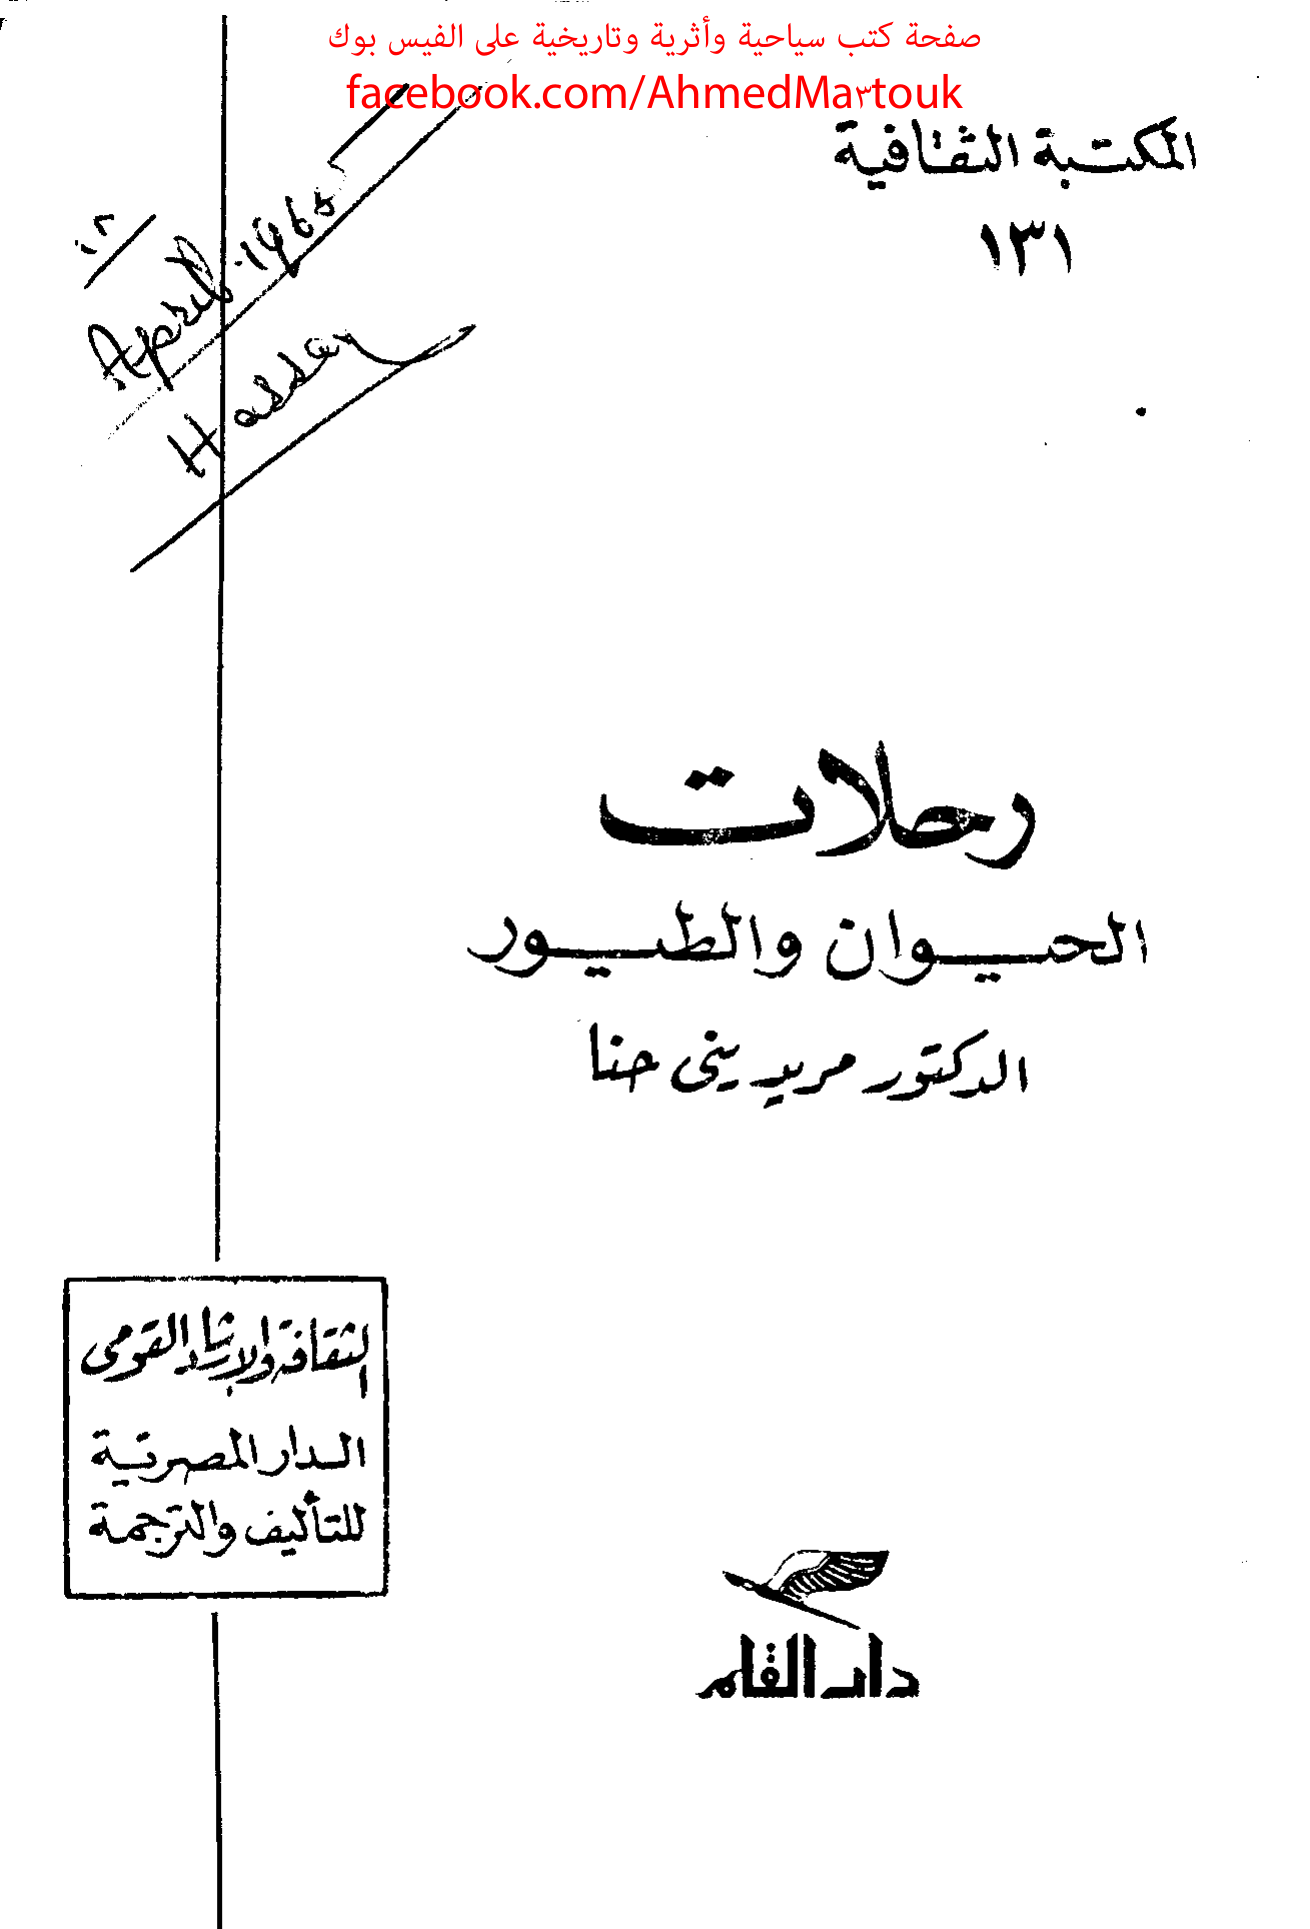 صفحة كتب سياحية وأثرية وتاريخية على الفيس بوك
facebook.com/AhmedMa٣touk
المكتبة الثقافية
١٣١
١٢
April 1965
Hassan
رحلات
الحيوان والطيور
الدكتور مريد ينى حنا
الثقافة والإرشاد القومى
الدار المصرية
للتأليف والترجمة
دار القلم